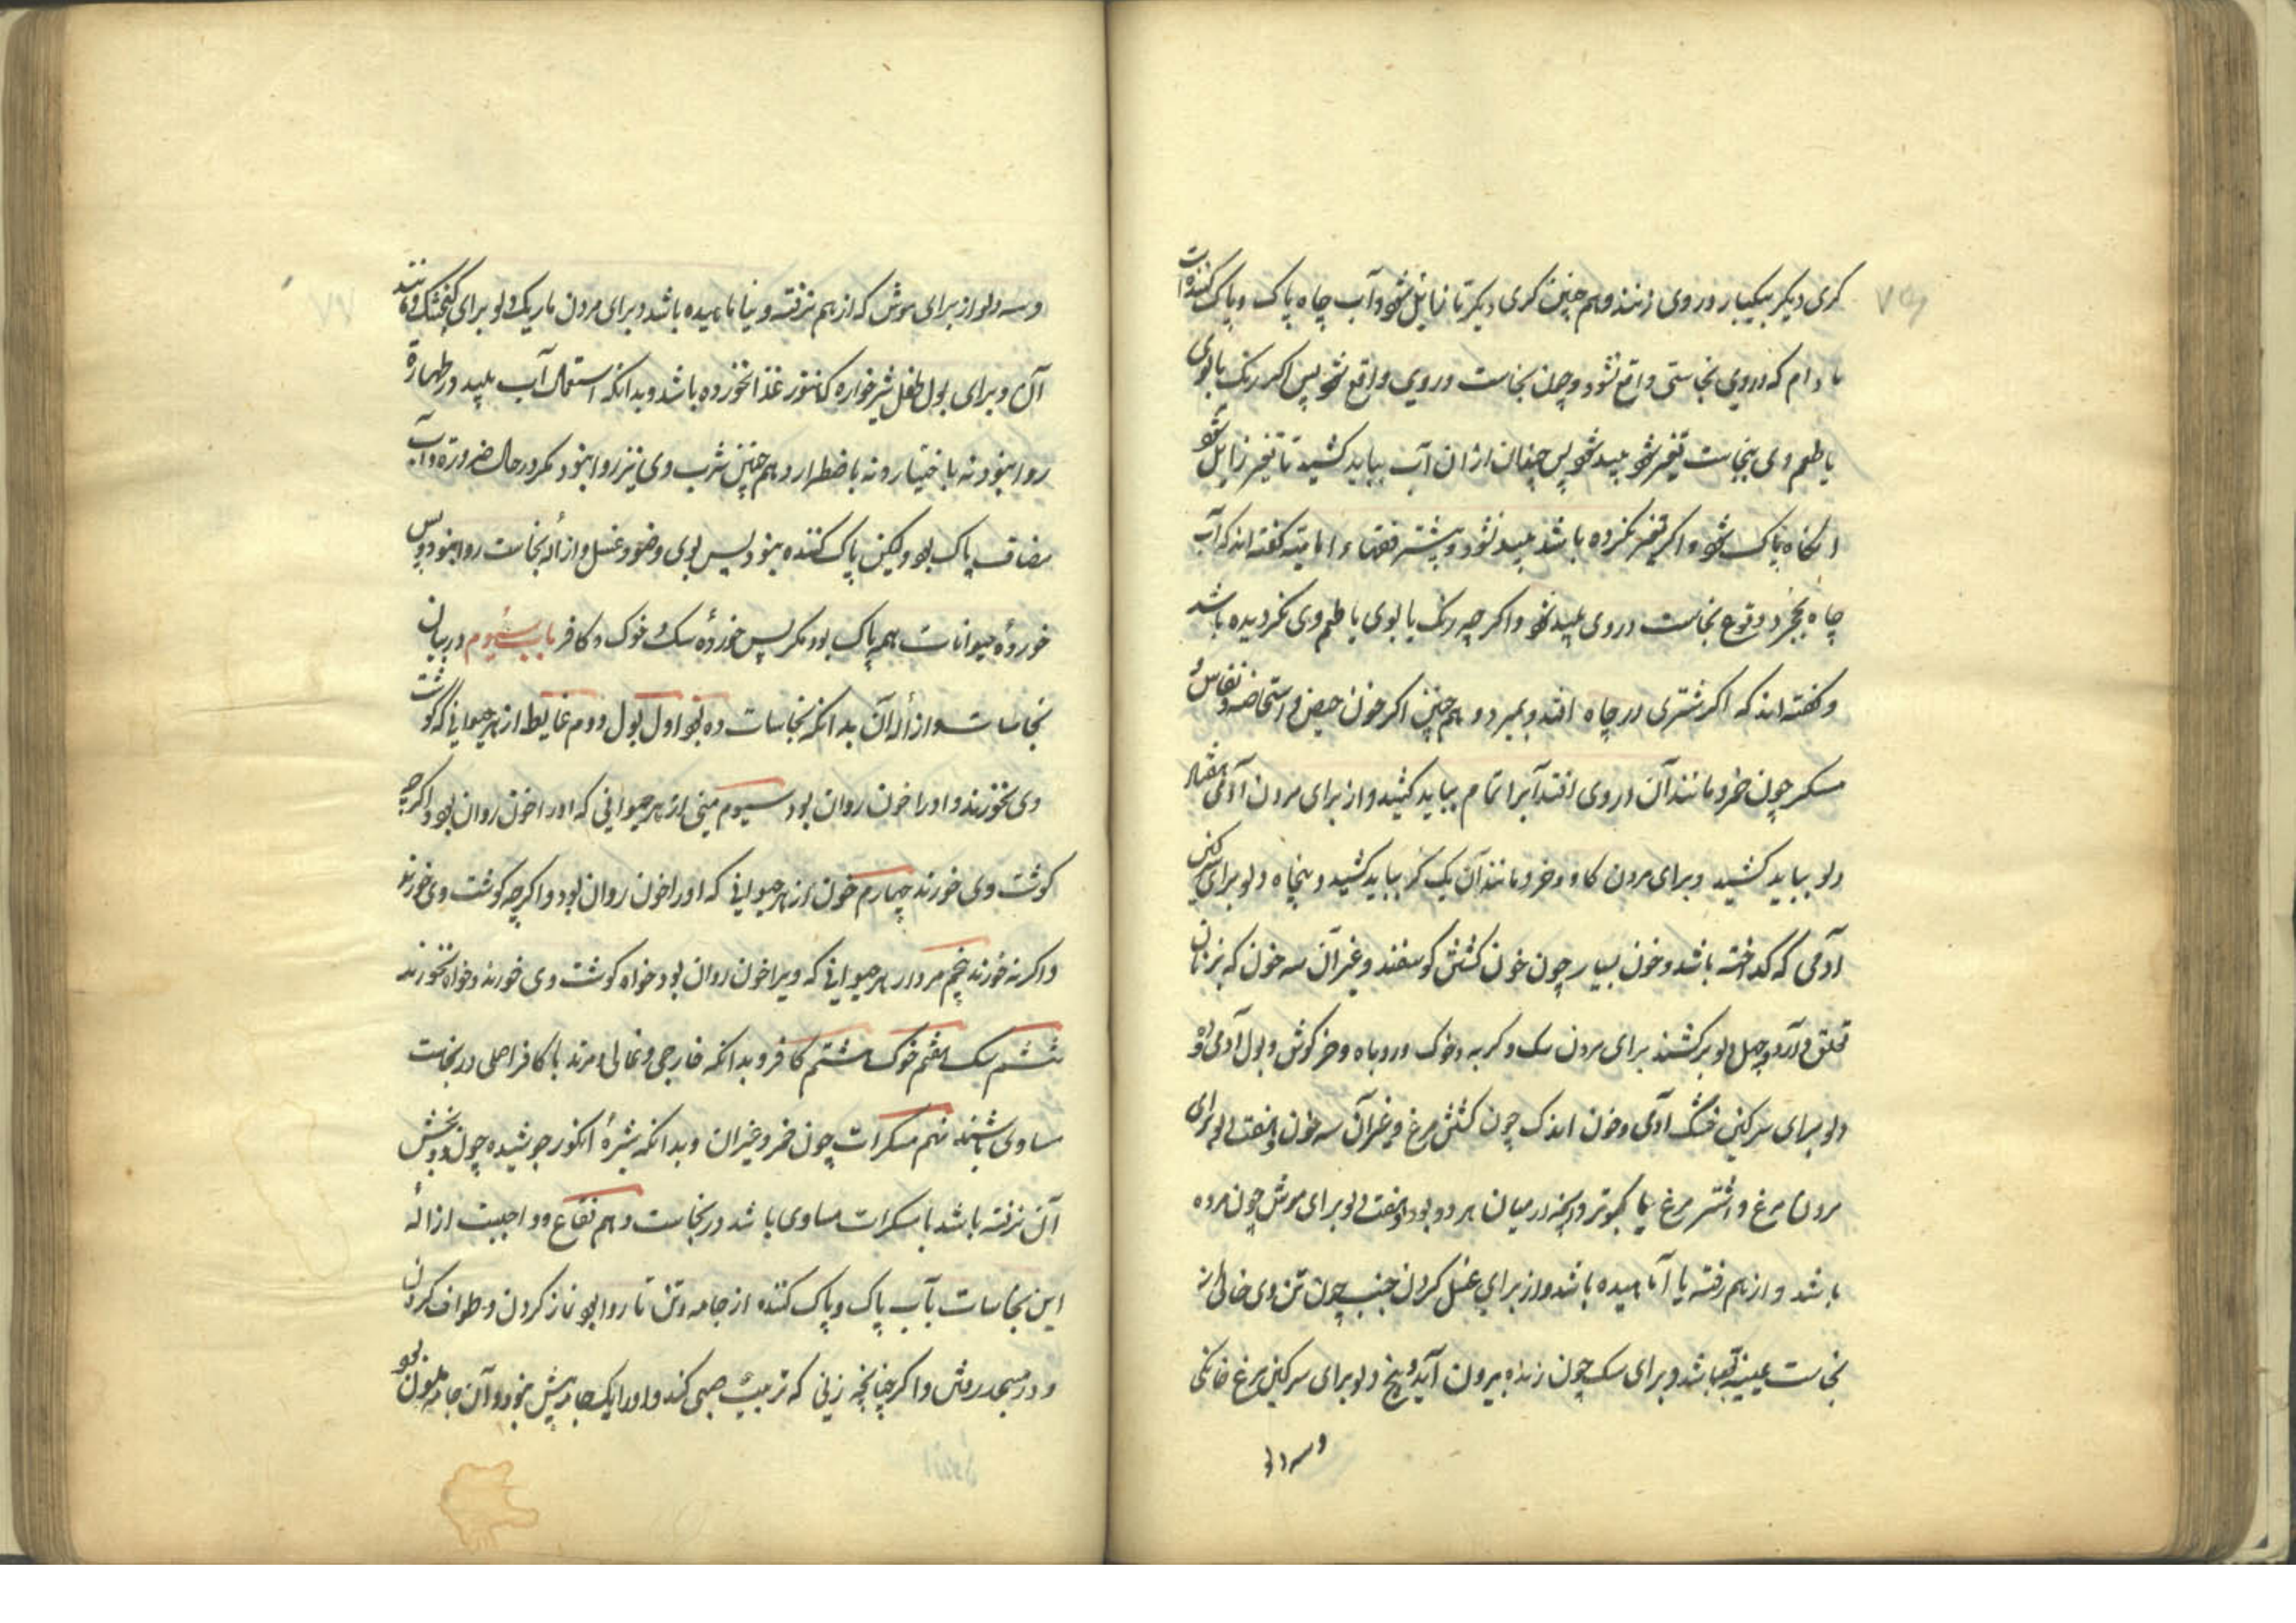 کری دیگر بیکبار در وی زنند و هم چنین کری دیگر تا زایل شود و آب چاه پاک و پاک کننده است
مادام که در وی نجاستی واقع نشود و چون نجاست در وی واقع شود پس اگر رنک یا بوی
یا طعم وی بنجاست تغیر شود پلید شود پس چندان از ان آب بباید کشید تا تغیر زایل شود
انکاه پاک شود و اگر تغیر نکرده باشد پلید نشود و بیشتر فقها امامیه گفته اند که آب
چاه بمجرد وقوع نجاست در وی پلید شود و اگر چه رنک یا بوی یا طعم وی نکردیده باشد
و گفته اند که اگر شتری در چاه افتد و بمیرد و هم چنین اگر خون حیض و استحاضه و نفاس و
مسکر چون خمر و مانند آن در وی افتد آبرا تمام بباید کشید و از برای مردن آدمی هفتاد
دلو بباید کشید و برای مردن کاو و خر و مانند آن یک کر بباید کشید و پنجاه دلو برای سرکین
آدمی که کداخته باشد و خون بسیار چون خون کشتن کوسفند و غیر آن سه خون که بزنان
تعلق دارد و چهل دلو برکشند برای مردن سک و کربه و خوک و روباه و خرکوش و بول آدمی و ده
دلو برای سرکین خشک آدمی و خون اندک چون کشتن مرغ و غیر آن سه خون و هفت دلو برای
مردن مرغ و اشتر مرغ یا کبوتر و آنچه در میان هر دو بود و هفت دلو برای موش چون مرده
باشد و از هم رفته یا آماهیده باشد و از برای غسل کردن جنب چون تن وی خالی از
نجاست عینیه باشد و برای سک چون زنده بیرون آید و پنج دلو برای سرکین مرغ خانکی
وسه دلو
وسه دلو از برای موش که از هم نرفته و نیاماهیده باشد و برای مردن مار یک دلو برای کنجشک و مانند
آن و برای بول طفل شیرخواره که هنوز غذا نخورده باشد و بدانکه استعمال آب پلید در طهارة
روا نبود نه باختیار و نه باضطرار و هم چنین شرب وی نیز روا نبود مکر در حال ضرورة و آب
مضاف پاک بود ولیکن پاک کننده نبود پس بوی وضو و غسل و ازاله نجاست روا نبود و پس
خورده حیوانات همه پاک بود مکر پس خورده سک و خوک و کافر باب سیوم در بیان
نجاسات و ازاله آن بدانکه نجاسات ده بود اول بول دوم غایط از هر حیوانی که کوشت
وی نخورند و اورا خون روان بود سیوم منی از هر حیوانی که اورا خون روان بود و اکرچه
کوشت وی خورند چهارم خون از هر حیوانی که اورا خون روان بود و اکرچه کوشت وی خورند
و اکر نه خورند پنجم مردار هر حیوانی که ویرا خون روان بود خواه کوشت وی خورند و خواه نخورند
ششم سک هفتم خوک هشتم کافر و بدانکه خارجی و غالی و مرتد با کافر اصلی در نجاست
مساوی باشند نهم مسکرات چون خمر و غیر آن و بدانکه شیرهٔ انکور جوشیده چون دو بخش
آن نرفته باشد با مسکرات مساوی باشد در نجاست دهم فقاع و واجبست ازالهٔ
این نجاسات بآب پاک و پاک کننده از جامه و تن تا روا بود نماز کردن و طواف کردن
و در مسجد رفتن و اکر چنانچه زنی که تربیت صبی کند و اورا یک جامه بیش نبود و آن جامه ملون بود